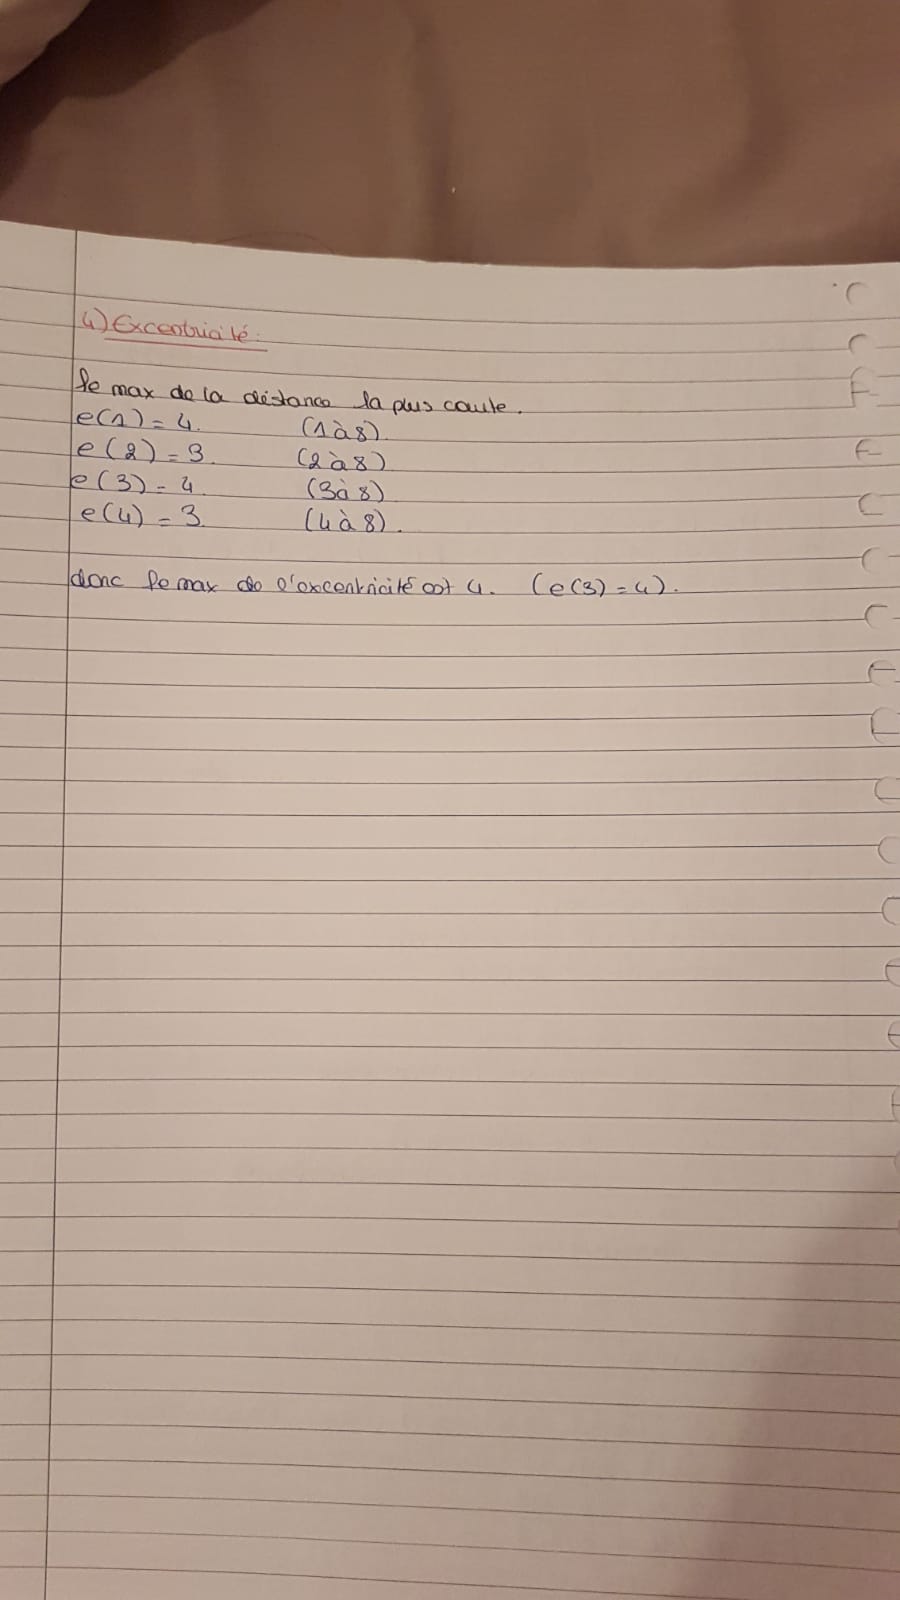 4) Excentricité :
le max de la distance la plus coute.
e(1) = 4. (1 à 8).
e(2) = 3. (2 à 8)
e(3) = 4. (3 à 8)
e(4) = 3 (4 à 8).
donc le max de l'excentricité est 4. (e(3) = 4).